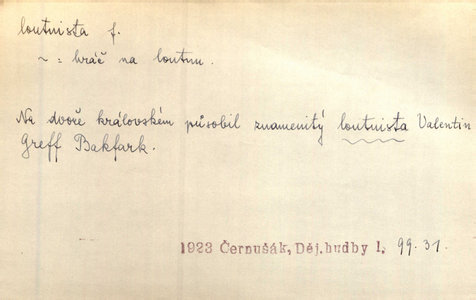 loutnista f.
~ = hráč na loutnu.
Na dvoře královském působil znamenitý loutnista Valentin
Greff Bakfark.
1923 Černušák, Děj. hudby I, 99.31.